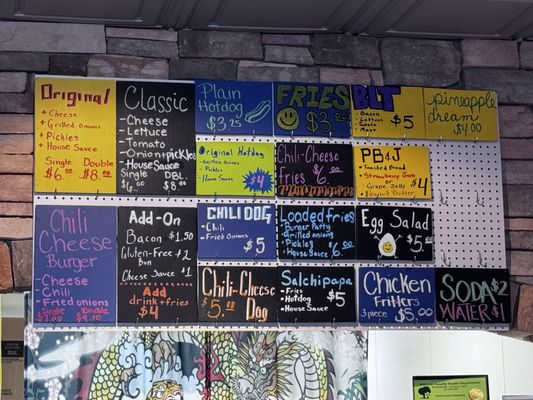 Original
+ Cheese
+ Grilled onions
+ Pickles
+ House Sauce
Single Double
$6.00 $8.00
Classic
- Cheese
- Lettuce
- Tomato
- Onion + pickles
- House Sauce
Single DBL
$6.00 $8.00
Plain
Hotdog
$3.25
FRIES
$3.00
BLT
Bacon
Lettuce
Tomato
Mayo
$5
pineapple
dream
$4.00
Original Hotdog
- Grilled Onions
- Pickles
- House Sauce
$4
Chili-Cheese
Fries
$6
PB&J
- Toasted Bread
- Strawberry Jelly
or
Grape Jelly
- Peanut Butter
$4
Chili
Cheese
Burger
- Cheese
- Chili
- Fried onions
Single Double
$7.00 $9.00
Add-On
Bacon $1.50
Gluten-Free $2
Bun
Cheese Sauce $1
Add
drink + fries
$4
CHILI DOG
- Chili
- Fried Onions
$5
Loaded fries
- Burger Patty
- Grilled onions
- Pickles
- House Sauce
$6.00
Egg Salad
$5.00
Chili-Cheese
Dog
$5.00
Salchipapa
- Fries
- Hotdog
- House Sauce
$5
Chicken
Fritters
3 piece $5.00
SODA $2
WATER $1